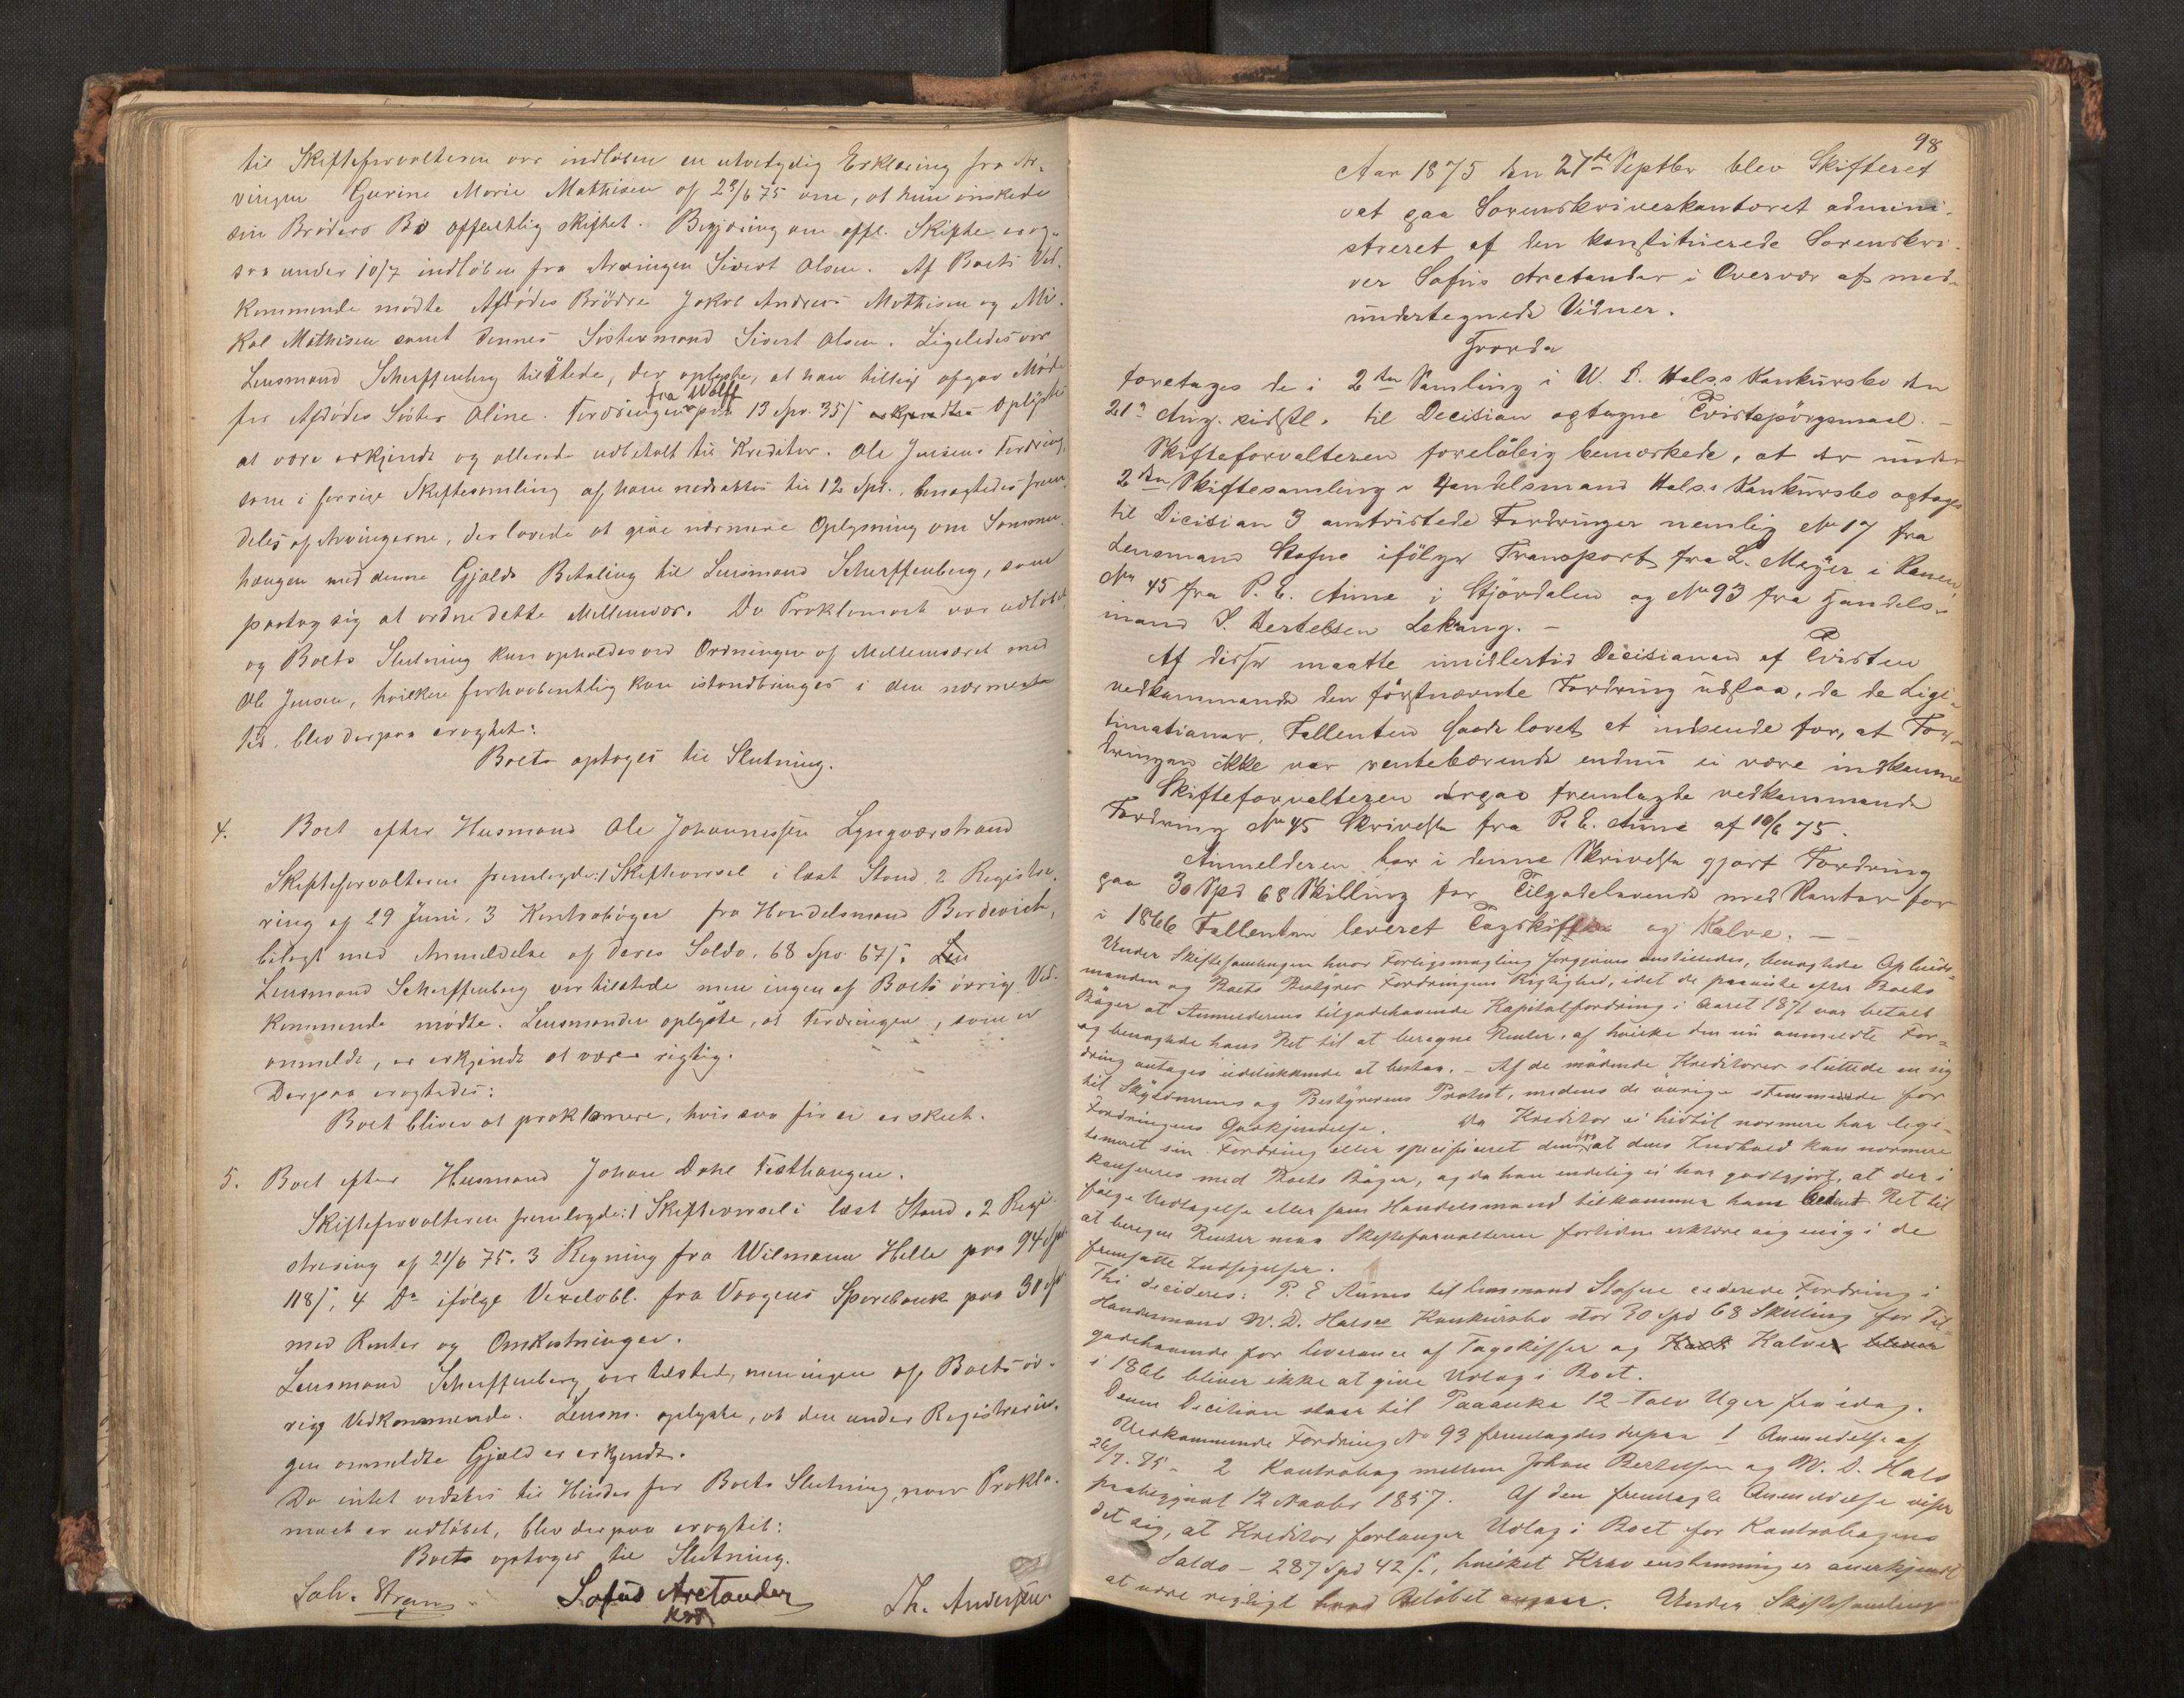 til Skifteforvalteren var indløben en utvetydig Erklæring fra Ar-
vingen Gurine Marie Mathisen af 23/6 75 om, at hun ønskede
sin Bröders Bo offentlig skiftet. Begjæring om offl. Skifte er og-
saa under 10/7 indløben fra Arvingen Sivert Olsen. Af Boets Ved-
kommende mødte Afdødes Brödre Jakob Andreas Mathisen og Mi-
kal Mathisen samt dennes Svøstermand Sivert Olsen. Ligeledes var
Lensmand Scherffenberg tilstede, der oplyste, at han tillige afgav Møde
for Afdødes Søster Aline. Fordringen fra Wolff paa 13 Spd. 35 ß erkjendtes oplystes
at være erkjendt og allerede udbetalt til Kreditor. Ole Jensens Fordring,
som i forrige Skiftesamling af ham nedsattes til 12 Spd., benægtedes frem-
deles af Arvingerne, der lovede at give nærmere Oplysning om Sammen-
hængen med denne Gjælds Betaling til Lensmand Scherffenberg, som
paatog sig at ordne dette Mellemvær. Da Proklamaet var udløbet
og Boets Slutning kun opholdes ved Ordningen af Mellemværet med
Ole Jensen, hvilken forhaabentlig kan istandbringes i den nærmeste
Tid, blev derpaa eragtet:
Boets optages til Slutning.
4. Boet efter Husmand Ole Johannessen Lyngværstrand
Skifteforvalteren fremlagde: 1 Skiftevarsel i læst Stand. 2 Registre-
ring af 29 Juni. 3 Kontrabøger fra Handelsmand Bordevich,
bilagt med Anmeldelse af deres Saldo. 68 Spd. 67 ß. Len
Lensmand Scherffenberg var tilstede men ingen af Boets øvrige Ved-
kommende mødte. Lensmanden oplyste, at Fordringen, som er
anmeldt, er erkjendt at være rigtig.
Derpaa eragtedes:
Boet bliver at proklamere, hvis saa før ei er skeet.
5. Boet efter Husmand Johan Dahl Festhaugen.
Skifteforvalteren fremlagde: 1 Skiftevarsel i læst Stand. 2 Regi-
strering af 21/6 75. 3 Regning fra Wilmann Helle paa 94 Spd
118 ß, 4 Do ifølge Vexelobl. fra Vaagens Sparebank paa 30 Spd
med Renter og Omkostninger.
Lensmand Scherffenberg var tilsted, men ingen af Boets øv-
rige Vedkommende. Lensm. oplyste, at den under Registrerin-
gen anmeldte Gjæld er erkjendt.
Da intet vidstes til Hinder for Boets Slutning, naar Prokla-
maet er udløbet, blev derpaa eragtet:
Boets optages til Slutning.
Joh. Strøm Sofus Arctander Th. Andersen
kst
98
Aar 1875 den 27de Septbr blev Skifteret
sat paa Sorenskriverkontoret admini-
streret af den konstituerede Sorenskri-
ver Sofus Arctander i Overvær af med-
undertegnede Vidner.
Hvorda
foretoges de i 2den Samling i W. D. Halss Konkursbo den
21de Aug. sidstl. til Decision optagne Tvistspörgsmaal. –
Skifteforvalteren foreløbig bemærkede, at der under
2den Skiftesamling i Handelsmand Halss Konkursbo optoges
til Dicision 3 omtvistede Fordringer nemlig No 17 fra
Lensmand Stafne ifölge Transport fra L. Meyer i Ranen
No 45 fra P. E. Aune i Stjördalen og No 93 fra Handels-
mand J. Bertelsen Lekang. –
Af disse maatte imidlertid Decisionen af Tvisten
vedkommende den förstnævnte Fordring udstaa, da de Legi-
timationer, Fallenten havde lovet at indsende for, at For-
dringen ikke var rentebærende endnu ei vare indkomne
Skifteforvalteren derpaa fremlagde vedkommende
Fordring No 45 Skrivelse fra P. E. Aune af 10/6 75.
Anmelderen har i denne Skrivelse gjort Fordring
paa 30 Spd 68 Skilling for Tilgodehavende med Renter for
i 1866 Fallenten leveret Tagskiffer og Kalve. –
Under Skiftesamlingen hvor Forligsmægling forgjæves anstilledes, benegtede Opbuds-
manden og Boets Bestyrer Fordringens Rigtighed, idet de paaviste efter Boets
Bøger at Anmelderens tilgodehavende Kapitalfordring i Aaret 1871 var betalt
og benægtede hans Ret til at beregne Renter, af hvilke den nu anmeldte For-
dring antages udelukkende at bestaa. – Af de mødende Kreditorer sluttede en sig
til Skyldnerens og Bestyrerens Protest, medens de øvrige stemmede for
Fordringens Godkjendelse. Da Kreditor ei hidtil nærmere har legi-
timeret sin Fordring eller specificeret den saa at dens Indhold kan nærmere
konfereres med Boets Bøger, og da han endelig ei har godtgjort, at der i
følge Vedtagelse eller som Handelsmand tilkommer ham Ret til
at beregne Renter maa Skifteforvalteren forsiden erklære sig enig i de
fremsatte Indsigelser.
Thi decideres: P. E. Aunes til Lensmand Stafne cederede Fordring i
Handelsmand W. D. Halss Konkursbo stor 30 Spd 68 Skilling for Til-
godehavende for Leverance af Tagskiffer og Kalve bliver
i 1866 bliver ikke at give Udlæg i Boet.
Denne Decision staar til Paaanke 12 – tolv Uger fra idag.
Vedkommende Fordring No 93 fremlagdes derpaa 1 Anmeldelse af
26/7. 75 – 2 Kontrabog mellem Johan Bertelsen og W. D. Hals
paabegyndt 12 Novbr 1857. Af den fremlagte Anmeldelse viser
det sig, at Kreditor forlanger Udlæg i Boet for Kontrabogens
Saldo – 287 Spd 42 ß., hvilket Krav enstemmig er anerkjendt
at være rigtigt hvad Beløbet angaar. Under Skiftesamlingen